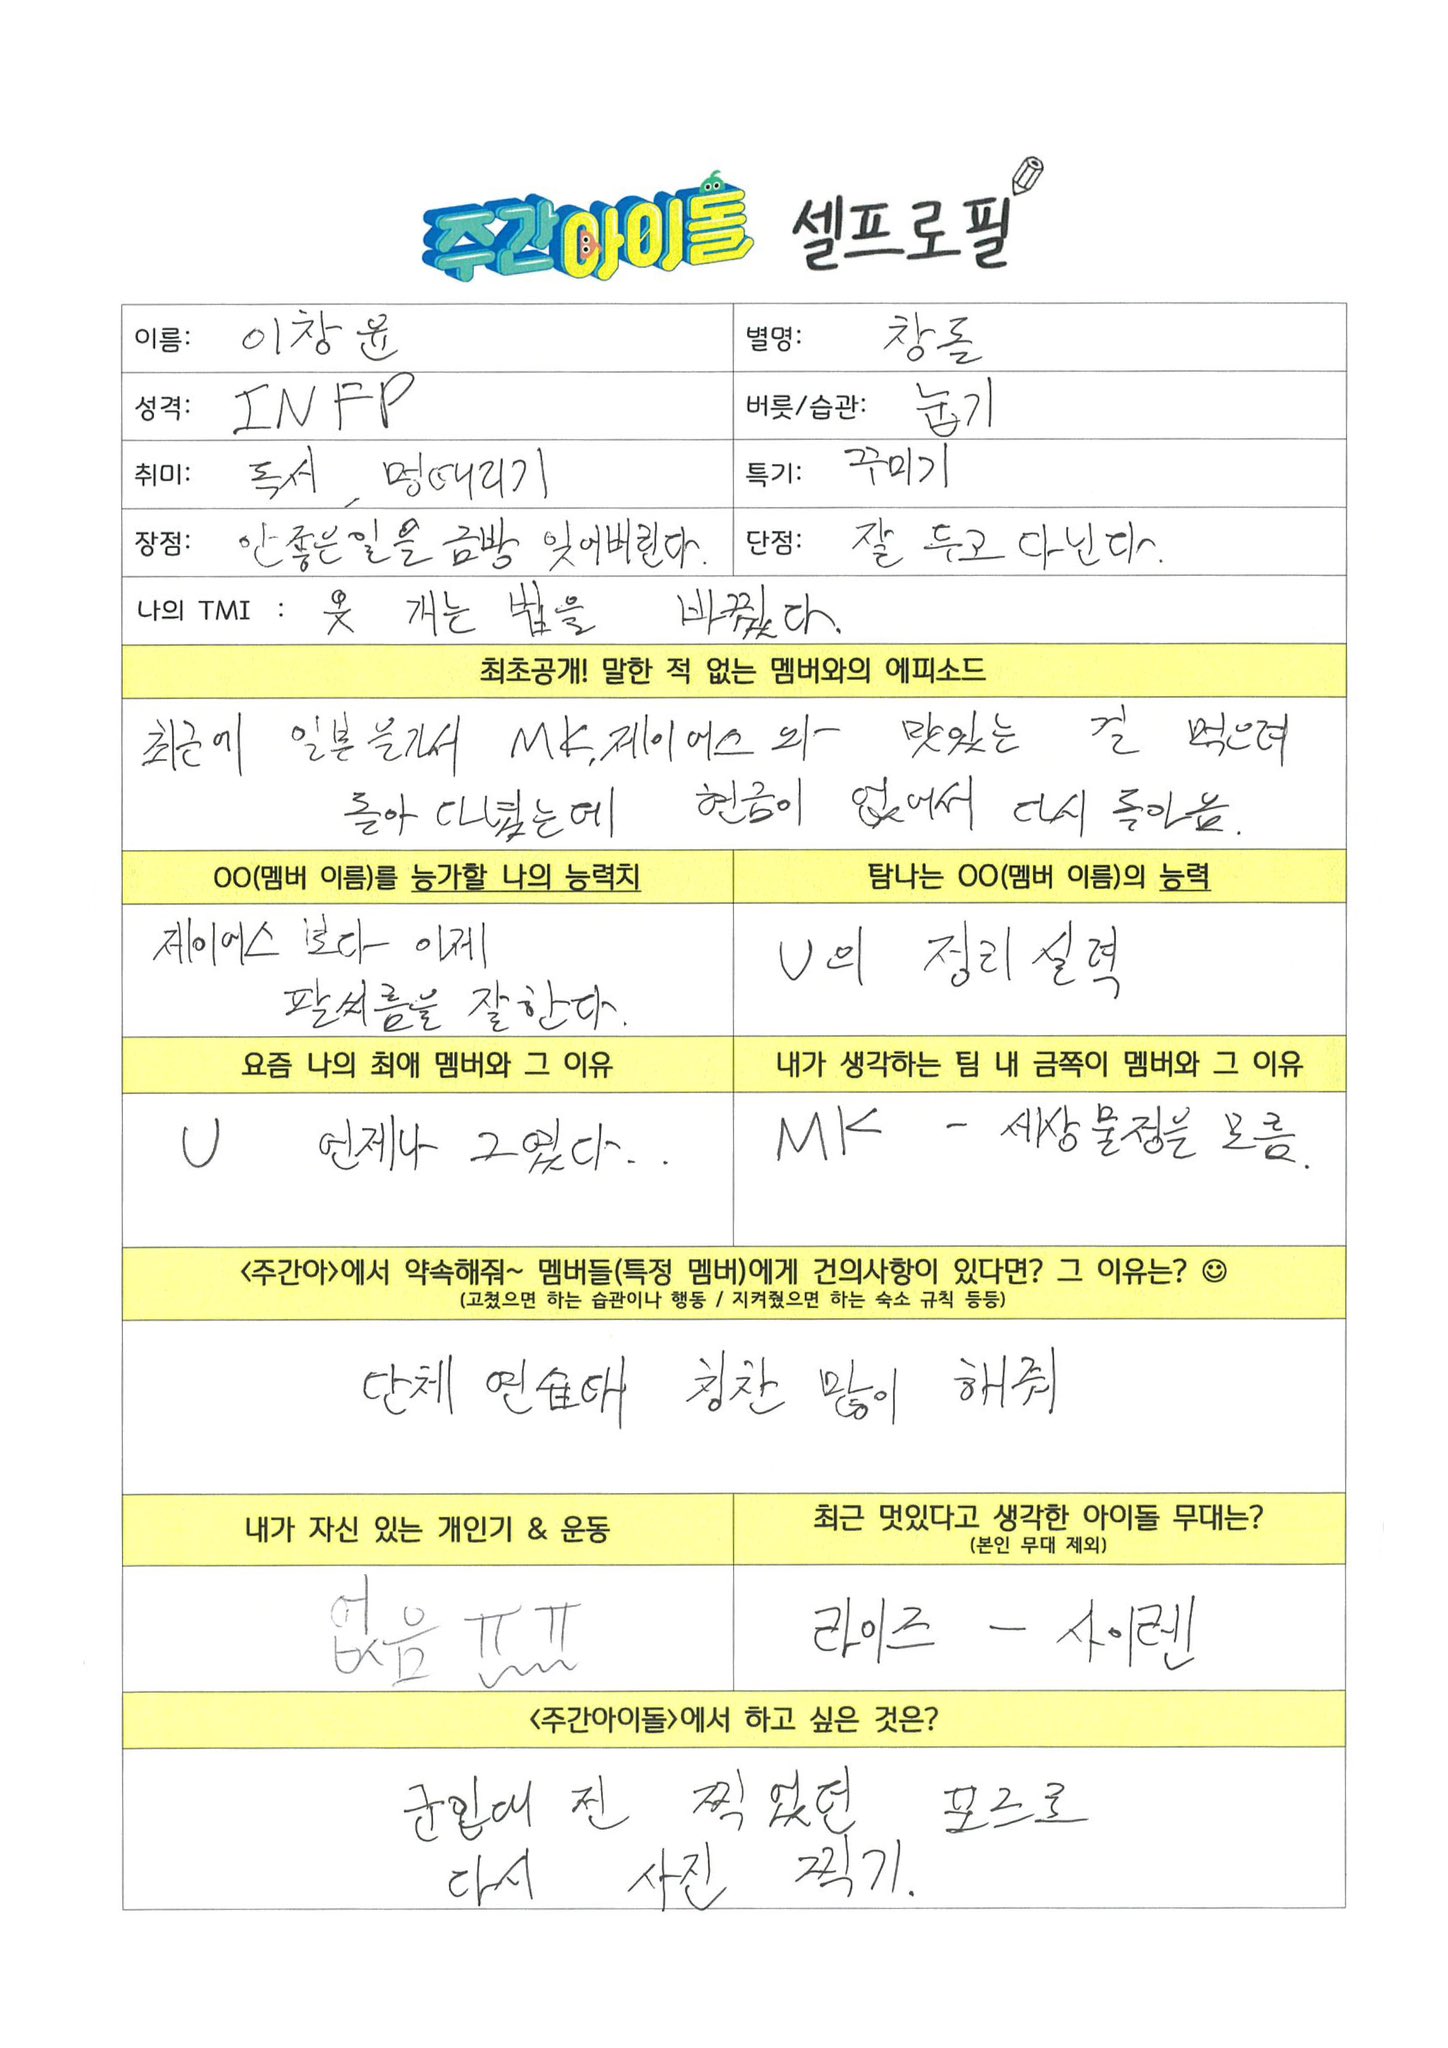 주간아이돌 셀프로필
이름: 이창윤
별명: 창돌
성격: INFP
버릇/습관: 눕기
취미: 독서, 멍때리기
특기: 꾸미기
장점: 안좋은일을 금방 잊어버린다.
단점: 잘 두고 다닌다.
나의 TMI : 옷 개는 법을 바꿨다.
최초공개! 말한 적 없는 멤버와의 에피소드
최근에 일본을가서 MK,제이어스와 맛있는 걸 먹으려
돌아 다녔는데 현금이 없어서 다시 돌아옴.
OO(멤버 이름)를 능가할 나의 능력치
탐나는 OO(멤버 이름)의 능력
제이어스 보다 이제
팔씨름을 잘한다.
U의 정리실력
요즘 나의 최애 멤버와 그 이유
내가 생각하는 팀 내 금쪽이 멤버와 그 이유
U 언제나 그였다..
MK - 세상물정을 모름.
<주간아>에서 약속해줘~ 멤버들(특정 멤버)에게 건의사항이 있다면? 그 이유는? ☺
(고쳤으면 하는 습관이나 행동 / 지켜줬으면 하는 숙소 규칙 등등)
단체 연습때 칭찬 많이 해줘
내가 자신 있는 개인기 & 운동
최근 멋있다고 생각한 아이돌 무대는?
(본인 무대 제외)
없음 ㅠㅠ
라이즈 - 사이렌
<주간아이돌>에서 하고 싶은 것은?
군입대 전 찍었던 포즈로
다시 사진 찍기.